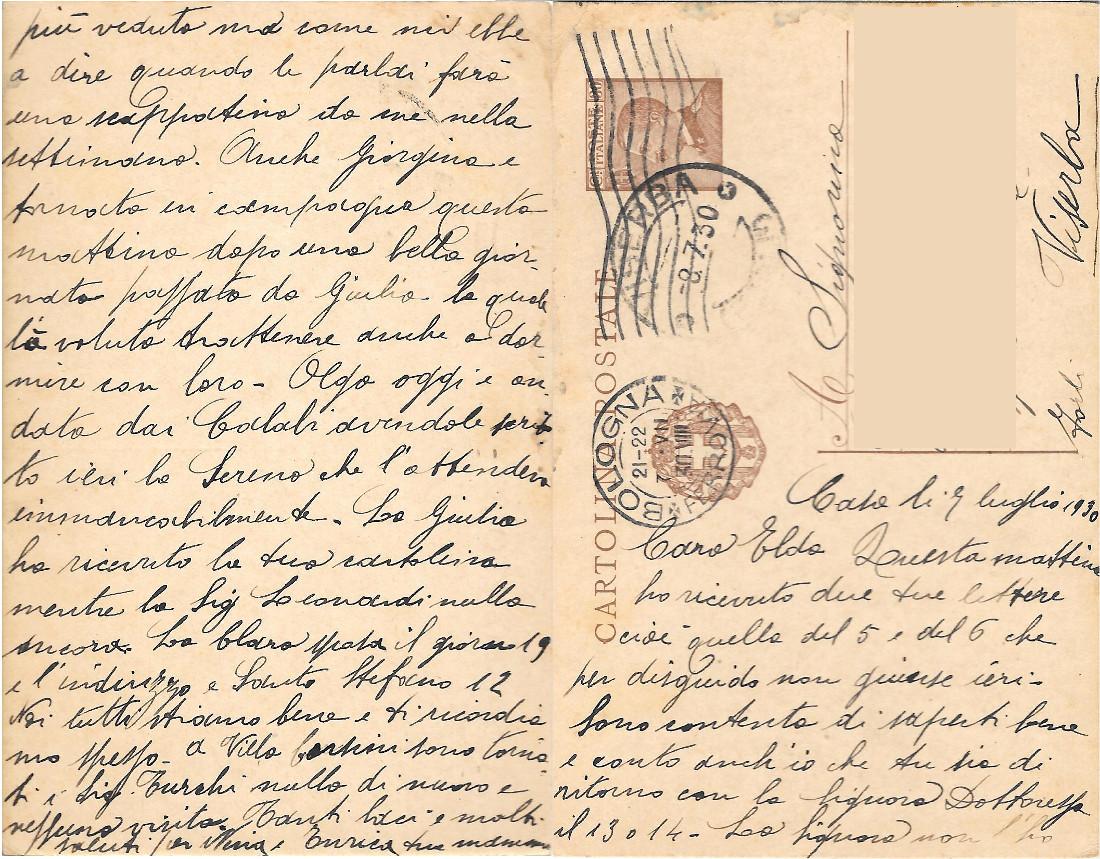 CARTOLINA POSTALE
POSTE ITALIANE
VISERBA
-8.7.30
BOLOGNA
FERROVIA
21-22
7 VII
30 VIII
A Signorina
Viserba
Forli
Casa li 7 luglio 1930
Cara Elda Questa mattina
ho ricevuto due tue lettere
cioè quella del 5 e del 6 che
per disguido non giunse ieri-
Sono contenta di saperti bene
e conto anch'io che tu sia di
ritorno con la signora Dottoressa
il 13 o 14- La signora non l'ho
più veduta ma come mi ebbe
a dire quando le parlai farà
una scappatina da me nella
settimana. Anche Giorgina e
tornata in campagna questa
mattina dopo una bella gior-
nata passata da Giulia la quale
là voluta trattenere anche a dor-
mire con loro- Olga oggi e an-
data dai Calabi avendole scrit-
to ieri la Serena che l'attendeva
immancabilmente- La Giulia
ha ricevuto la tua cartolina
mentre la Sig Leonardi nulla
ancora. La Clara sposa il giorno 19
e l'indirizzo e Santo Stefano 12
Noi tutti stiamo bene e ti ricordia
mo spesso- a Villa sono torna-
ti i Sig. Turchi nulla di nuovo e
nessuna visita Tanti baci e molti
saluti da Nina e Enrica tua mamma